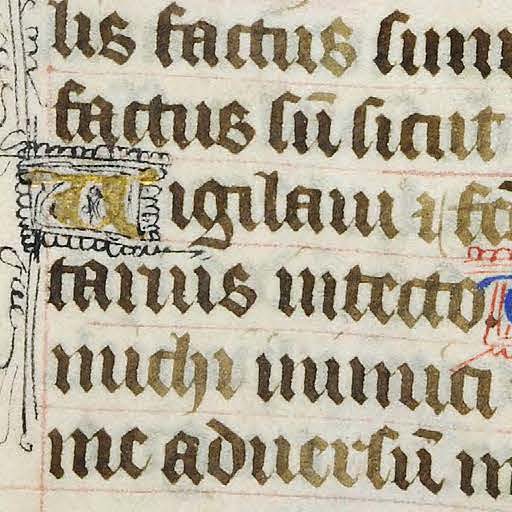 lis factus sum
factus sū sicut
Vigilavi ⁊ fc̄
tarius intecto
michi inimici
me adversū m